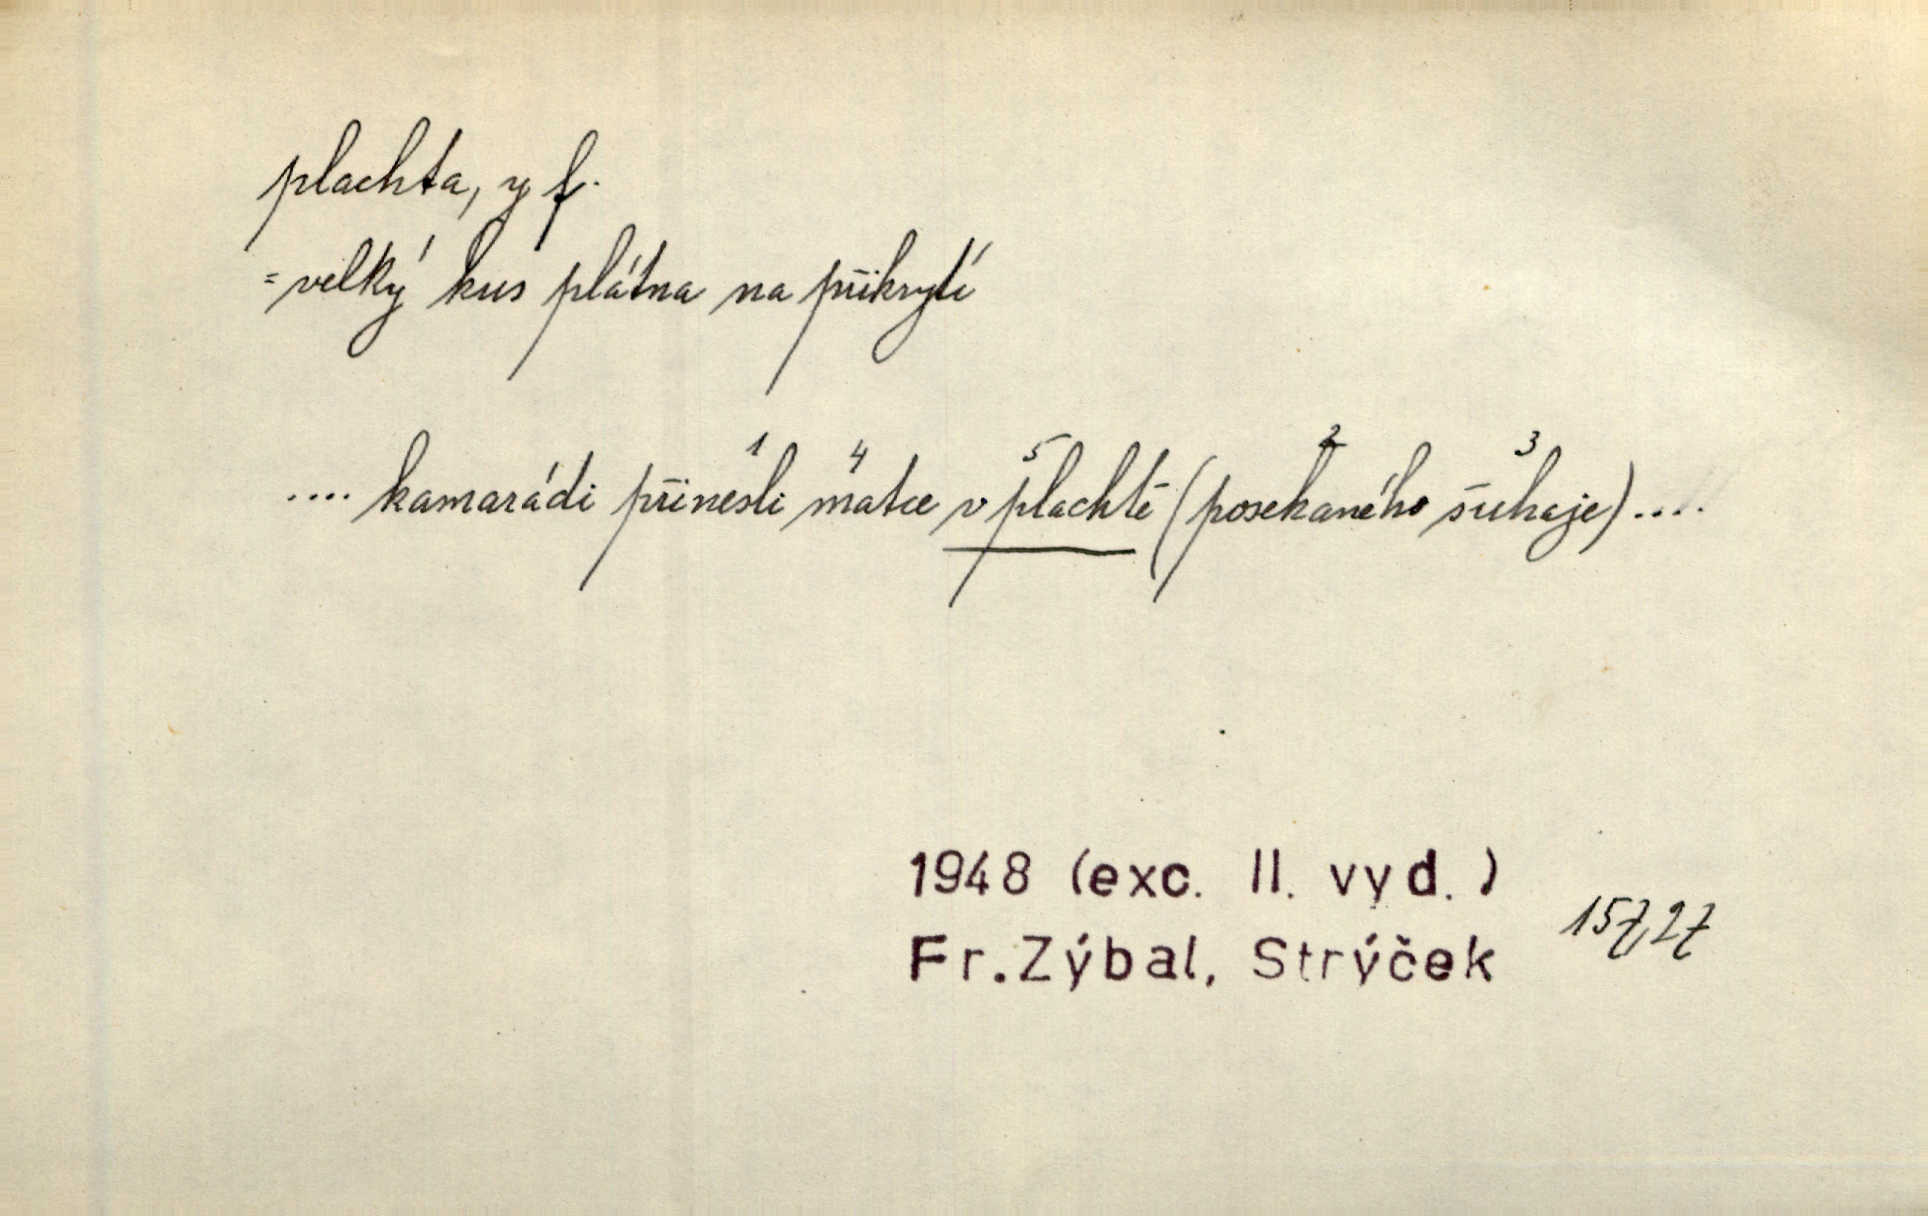 plachta, y f.
= velký kus plátna na přikrytí
1 4 5 2 3
.... kamarádi přinesli matce v plachtě (posekaného šuhaje) ....
1948 (exc. II. vyd.)
Fr. Zýbal, Strýček